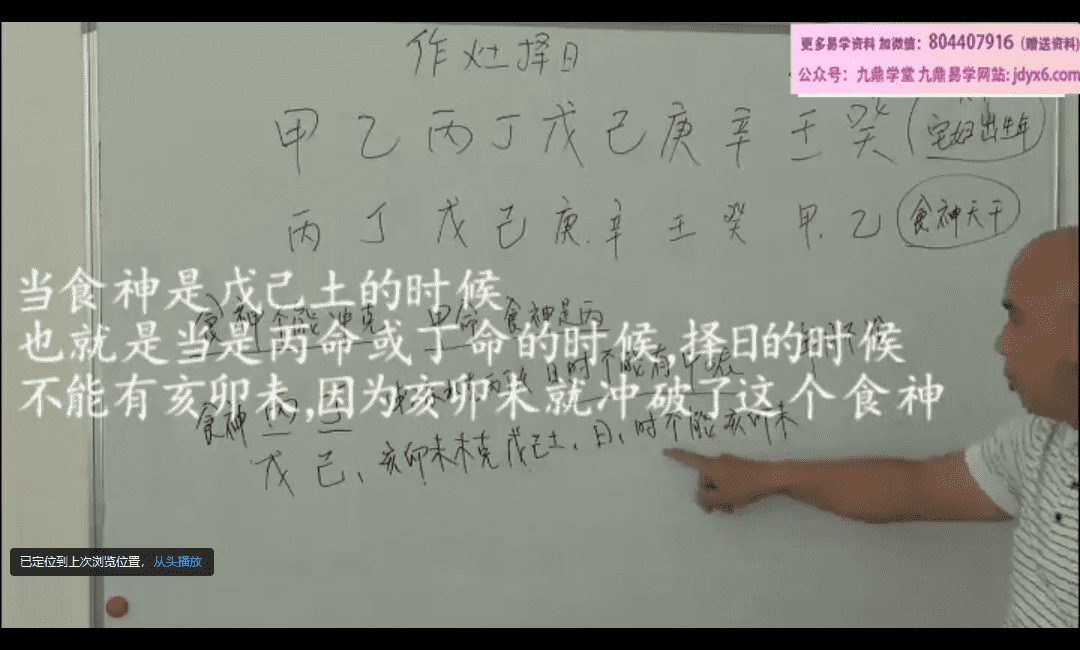 更多易学资料 加微信：804407916（赠送资料）
公众号：九鼎学堂 九鼎易学网站：jdyx6.com
作灶择日
甲乙丙丁戊己庚辛壬癸（宅妇出生年）
丙丁戊己庚.辛壬癸甲.乙（食神天干）
当食神是戊己土的时候
食神不能冲克 甲命 食神是丙
也就是当是丙命或丁命的时候,择日的时候
日时不能有申
不能有亥卯未,因为亥卯未就冲破了这个食神
食神丙
戊己、亥卯未木克戊己土、日、时不能亥卯未
已定位到上次浏览位置，从头播放